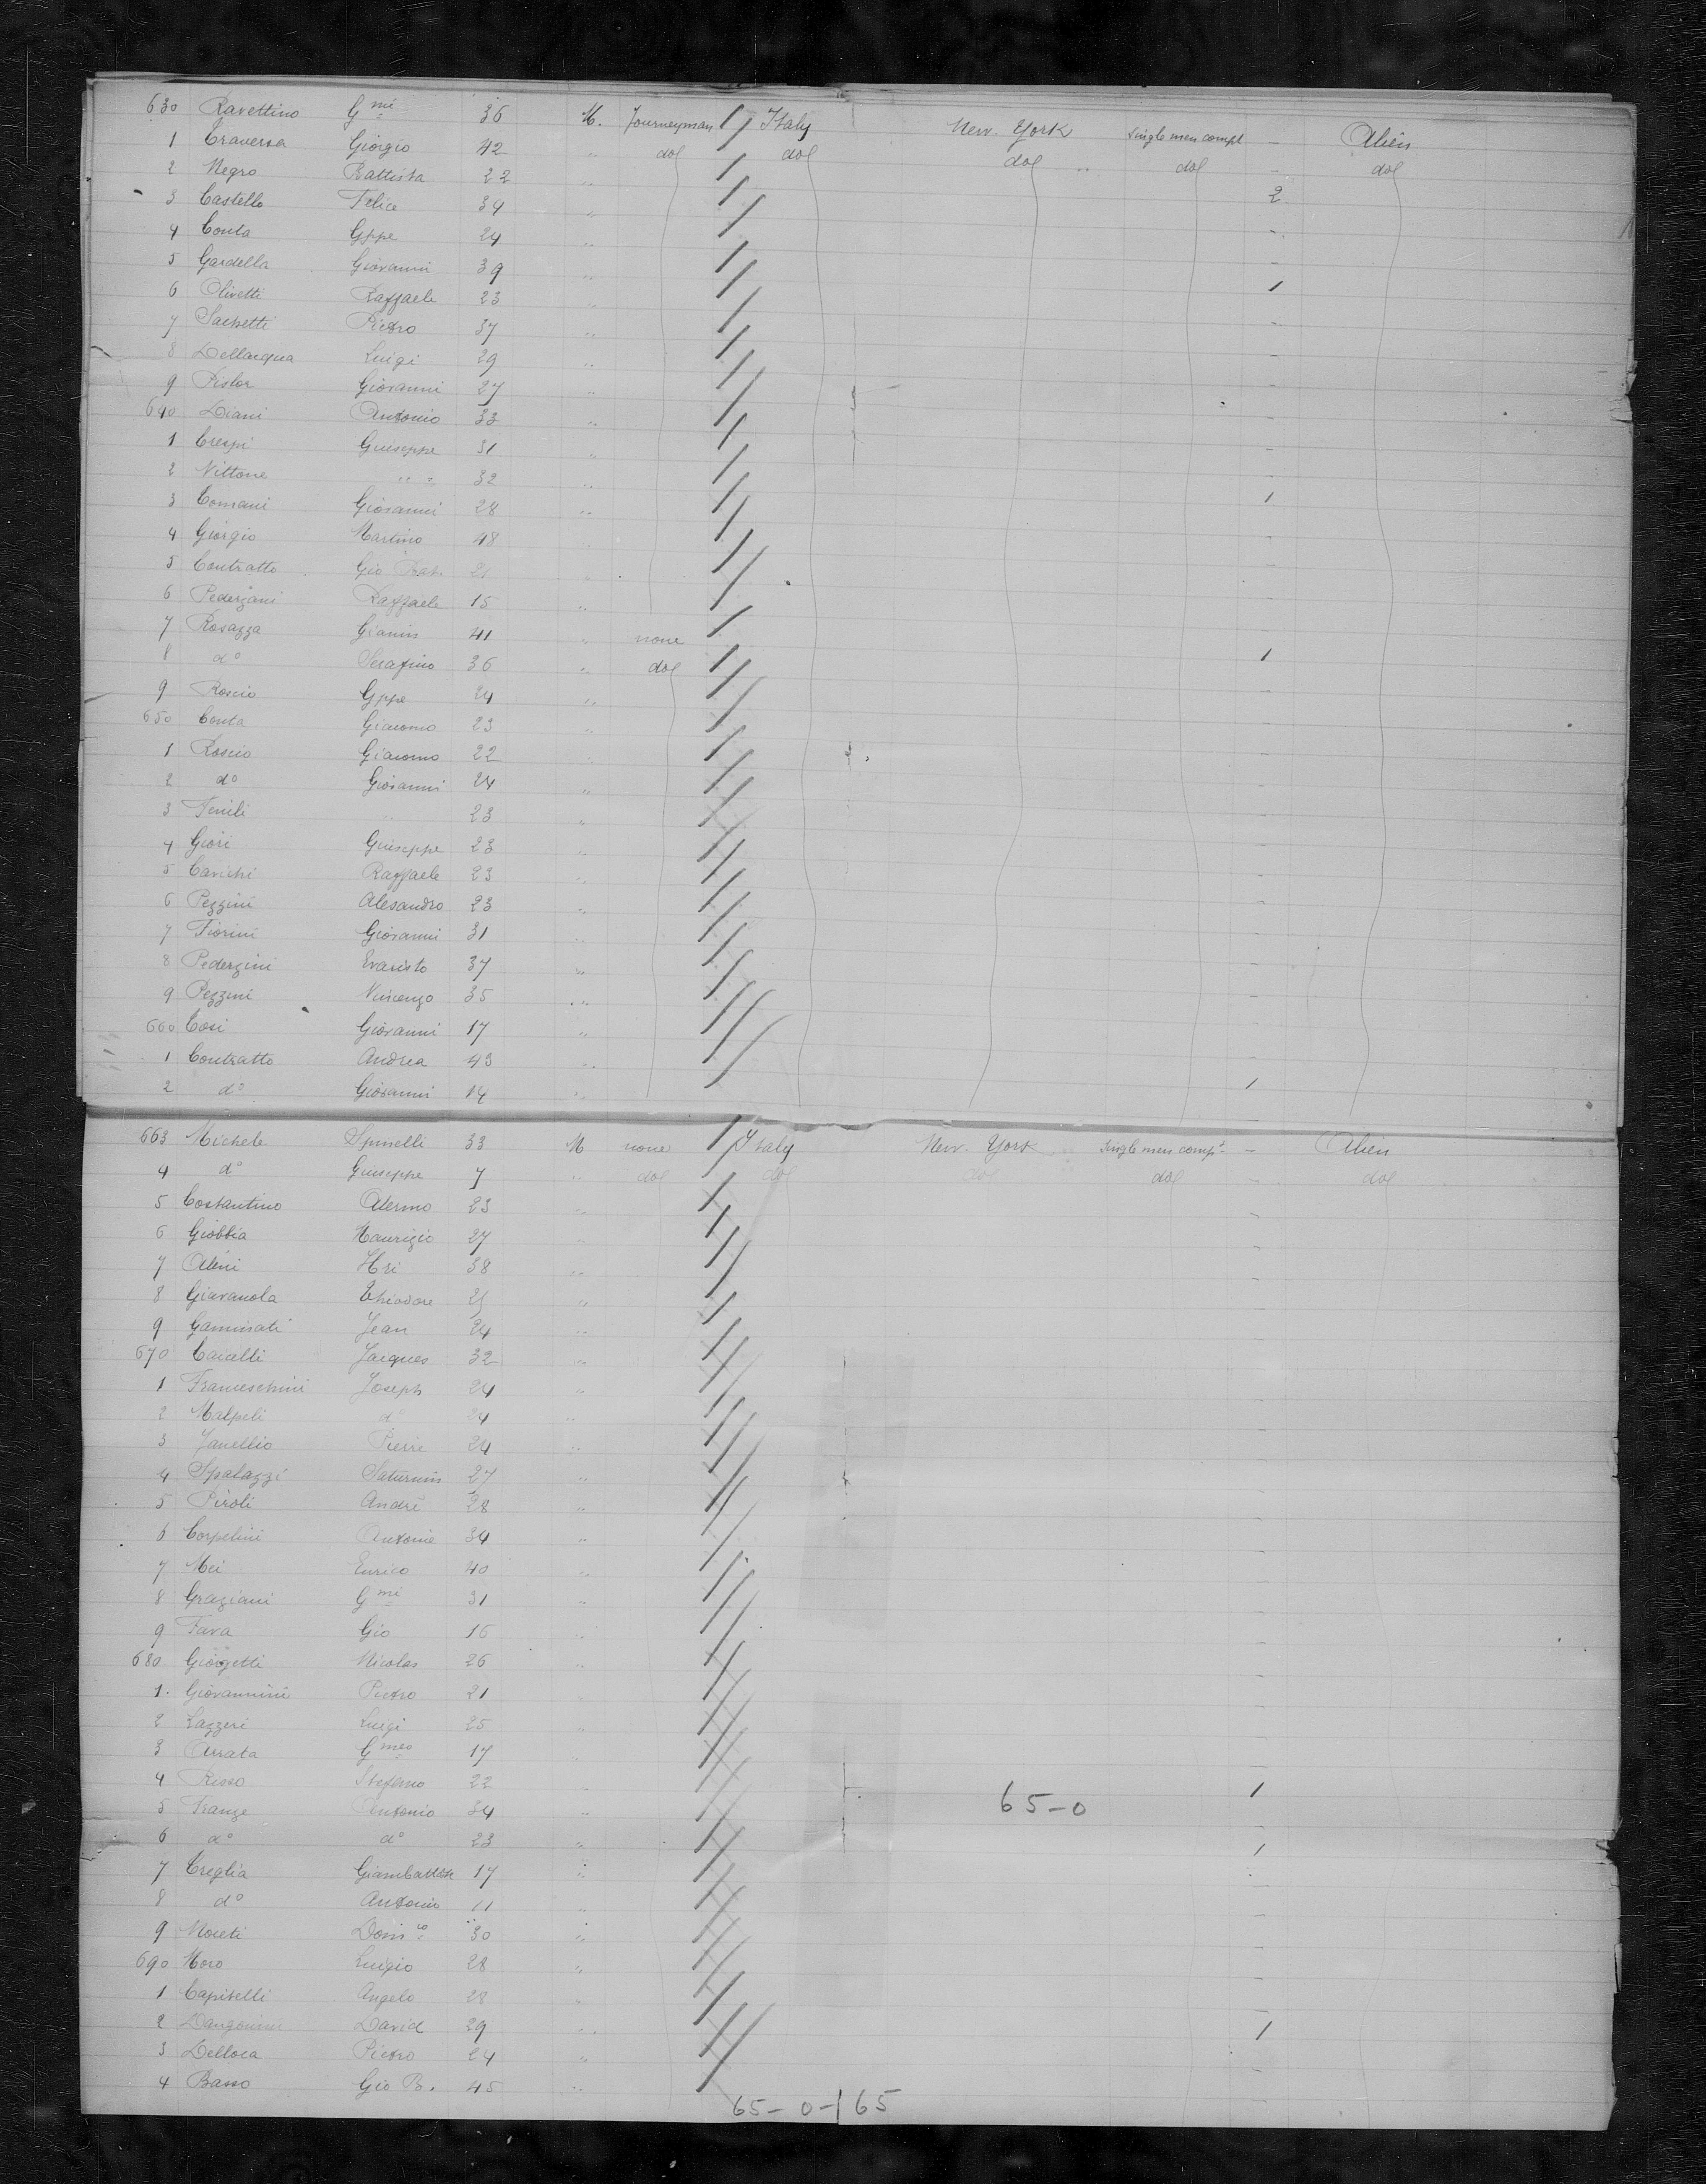 630 Ravettino Gmi 36 M. Journeyman Italy New-York single men compt - Alien
1 Traversa Giorgio 42 " do do do " do - do
2 Negro Battista 22 " 2
3 Castello Felice 34 "
4 Conta Gppe 24 " -
5 Gardella Giovanni 39 " -
6 Olivetti Raffaele 23 " 1
7 Sachetti Pietro 37 " -
8 Dellacqua Luigi 29 " -
9 Pistor Giovanni 27 " -
640 Diani Antonio 33 " -
1 Crespi Guiseppe 31 " -
2 Nittone " " 32 " -
3 Tomani Giovanni 28 " 1
4 Giorgio Martino 48 -
5 Contratto Gio Bat. 21 " -
6 Pederzani Raffaele 15 " -
7 Rosazza Gianin 41 " none -
8 do Serafino 36 " do 1
9 Roscio Gppe 24 " -
650 Conta Giacomo 23 " -
1 Roscio Giacomo 22 " -
2 do Giovanni 24 " -
3 Fenili " 23 " -
4 Giori Guiseppe 23 " -
5 Carichi Raffaele 23 " -
6 Pezzini Alesandro 23 " -
7 Fiorini Giovanni 31 " -
8 Pederzini Evaristo 37 " -
9 Pezzini Vincenzo 35 " -
660 Cosi Giovanni 17 " -
1 Contratto Andrea 43 " -
2 do Giovanni 14 " 1
663 Michele Spinelli 33 M none Italy New-York single men compt - Alien
4 do Guiseppe 7 " do do do do - do
5 Costantino Alermo 23 " -
6 Giobbia Maurizio 27 " -
7 Alini Hri 38 " -
8 Giavanola Theodore 25 " -
9 Gaminati Jean 24 " -
670 Cacelli Jacques 32 " -
1 Franceschini Joseph 24 " -
2 Malpeli do 24 " -
3 Janellio Pierre 24 " -
4 Spalazzi Saturnin 27 " -
5 Piroli André 28 " -
6 Corpelini Antonie 34 " -
7 Mei Enrico 40 " -
8 Graziani Gmi 31 " -
9 Fava Gio 16 " -
680 Giorgetti Nicolas 26 " -
1. Giovannini Pietro 21 " -
2 Lazzeri Luigi 25 " -
3 Arrata Gmeo 17 " -
4 Risso Stefano 22 " 1
5 Franze Antonio 34 " 65-0 -
6 do do 23 " 1
7 Treglia Giambattista 17 " -
8 do Antonio 11 " -
9 Moreti Domco 30 " -
690 Moro Luigio 28 " -
1 Capitelli Angelo 28 " -
2 David 29 " 1
3 Delloca Pietro 24 " -
4 Basso Gio B. 45 " -
65-0-/65